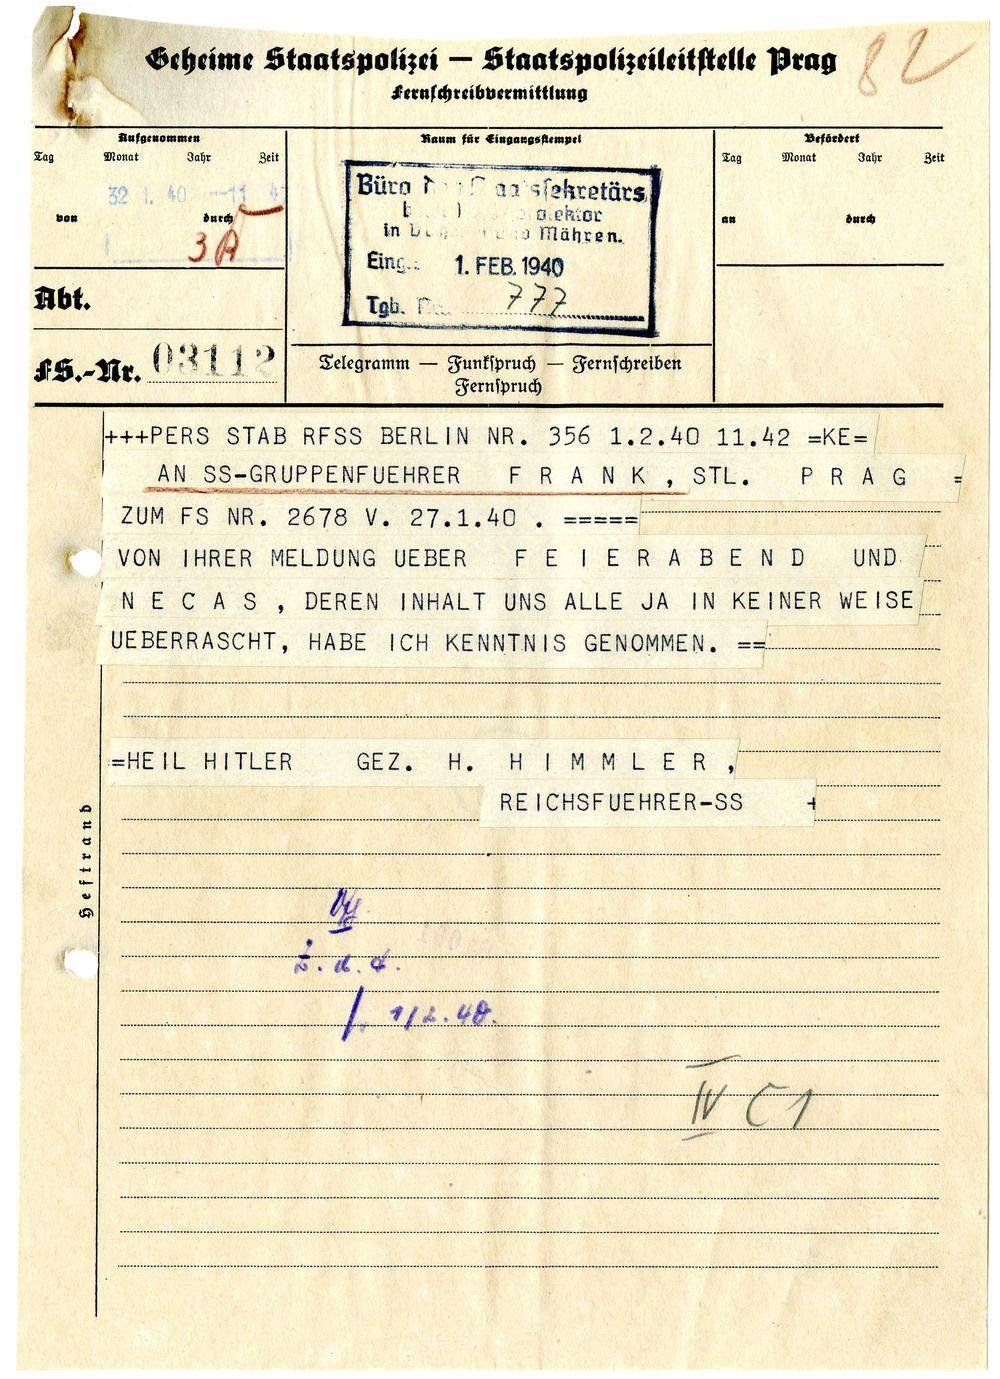 Geheime Staatspolizei — Staatspolizeileitstelle Prag
82
Fernschreibvermittlung
Aufgenommen
Tag Monat Jahr Zeit
1. 40
von durch
3A
Raum für Eingangsstempel
Büro Staatssekretärs
in Mähren.
Eing. 1. FEB. 1940
Tgb. 777
Befördert
Tag Monat Jahr Zeit
an durch
Abt.
FS.-Nr. 03112
Telegramm — Funkspruch — Fernschreiben
Fernspruch
+++PERS STAB RFSS BERLIN NR. 356 1.2.40 11.42 =KE=
AN SS-GRUPPENFUEHRER F R A N K , STL. P R A G =
ZUM FS NR. 2678 V. 27.1.40 . =====
VON IHRER MELDUNG UEBER F E I E R A B E N D UND
N E C A S , DEREN INHALT UNS ALLE JA IN KEINER WEISE
UEBERRASCHT, HABE ICH KENNTNIS GENOMMEN. ==
=HEIL HITLER GEZ. H. H I M M L E R ,
REICHSFUEHRER-SS +
Heftrand
z. d. A.
1/2. 40.
IV C 1